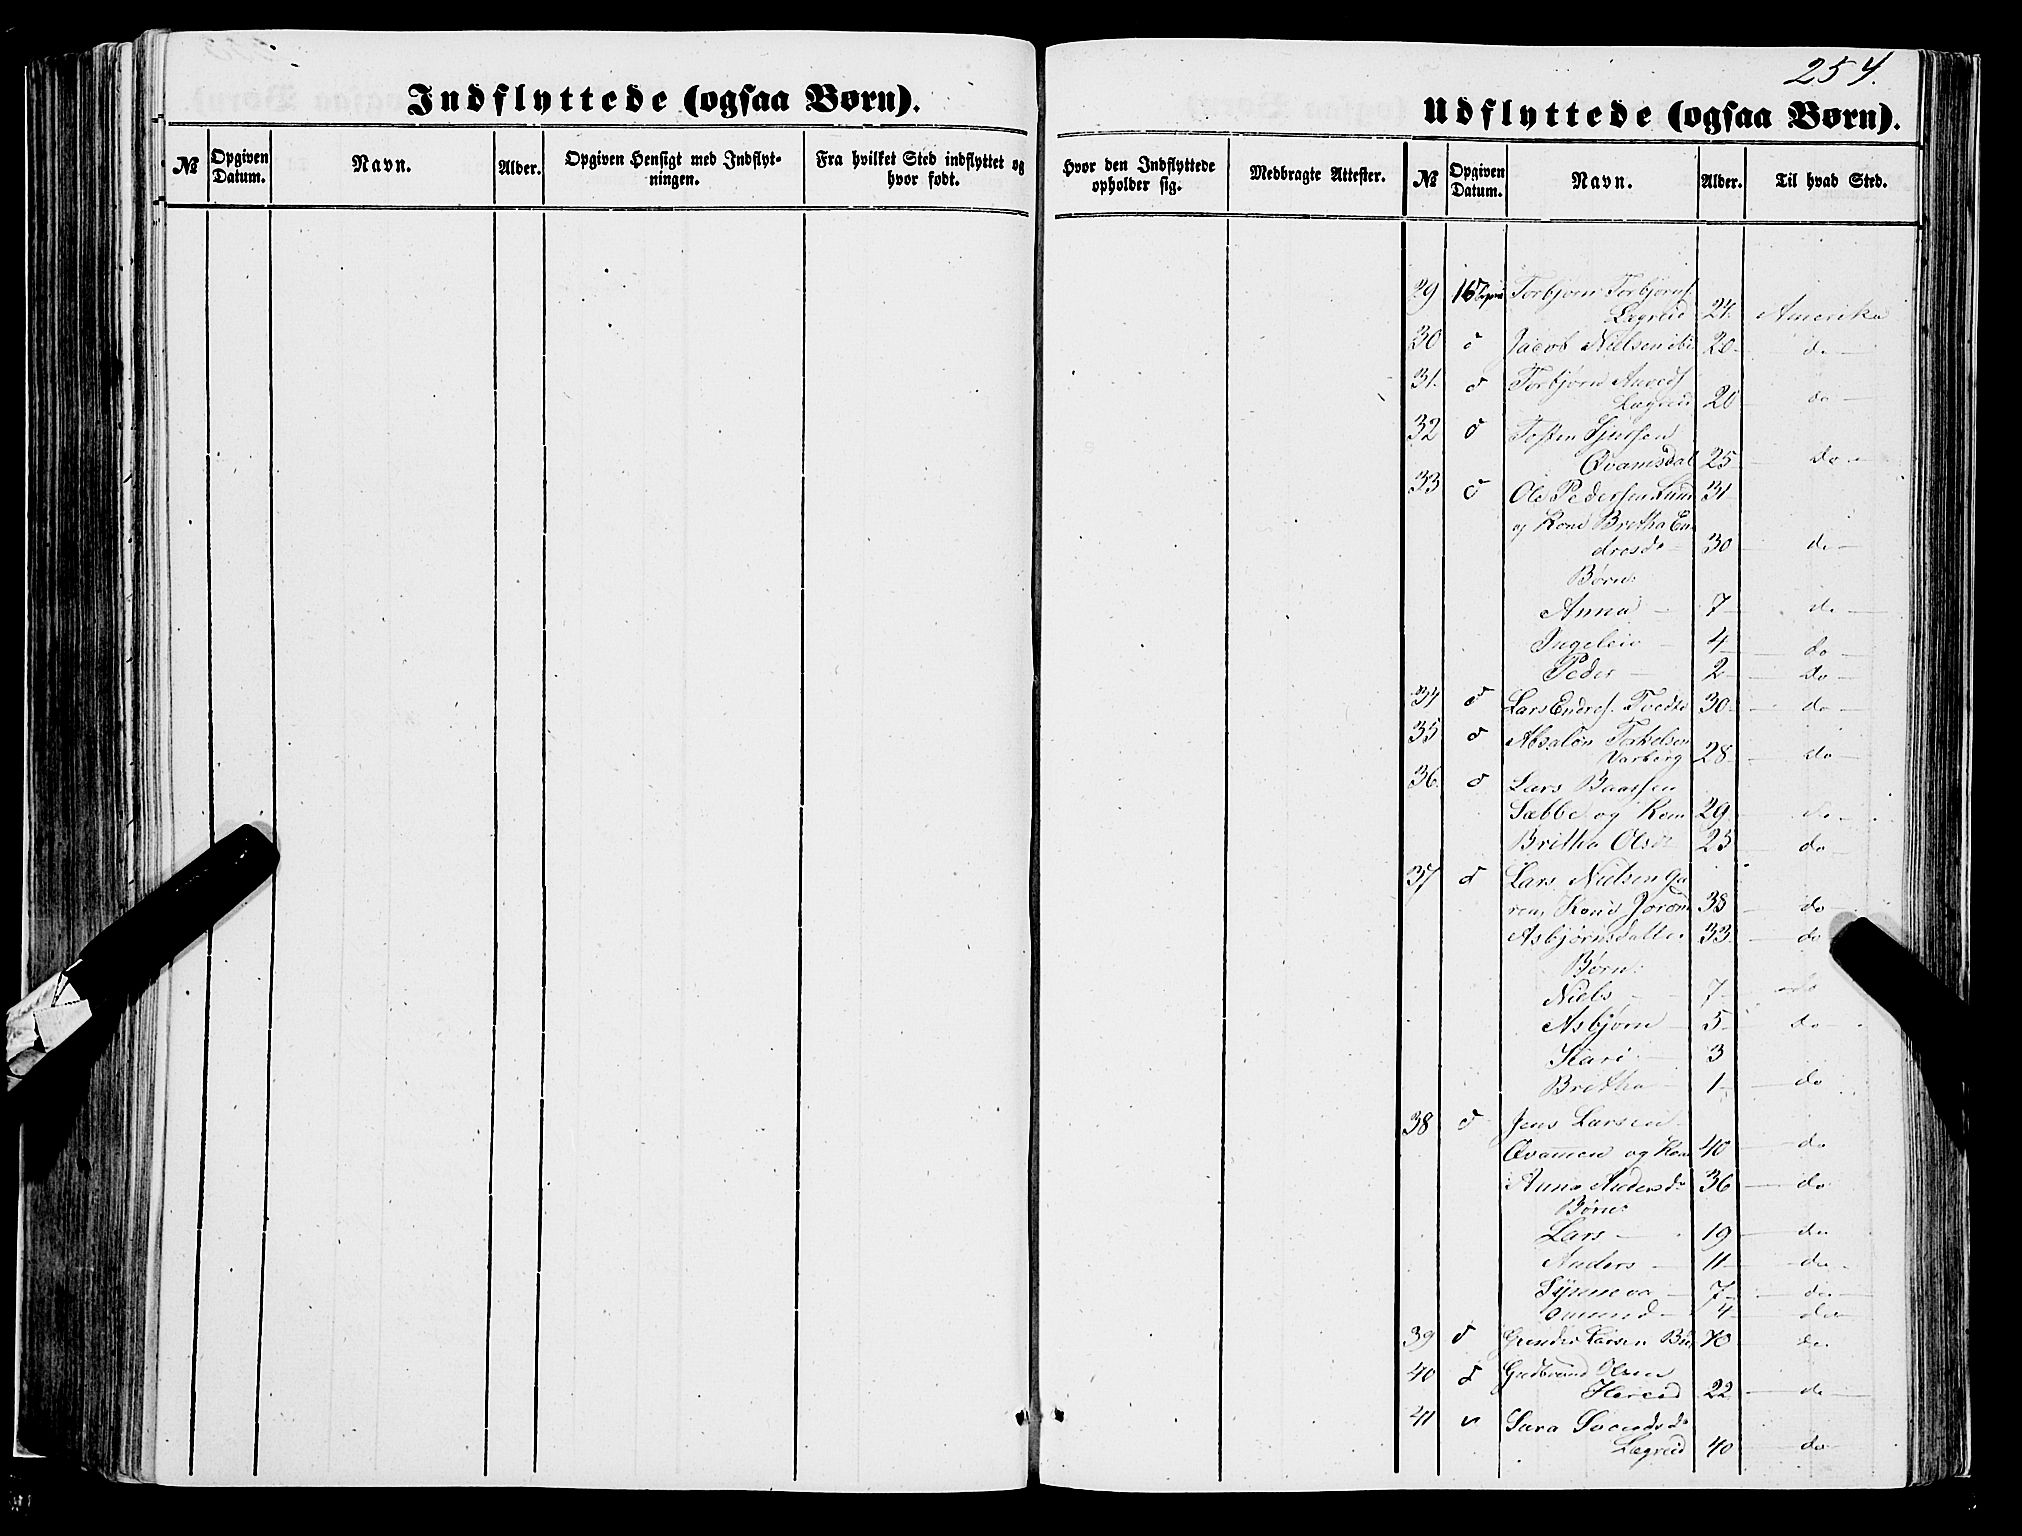 254.
Indflyttede (ogsaa Børn).
Udflyttede (ogsaa Børn).
№ Opgiven Datum. Navn. Alder. Opgiven Hensigt med Indflyt-ningen. Fra hvilket Sted indflyttet og hvor født. Hvor den Indflyttede opholder sig. Medbragte Attester. № Opgiven Datum. Navn. Alder. Til hvad Sted.
29 16 Torbjørn Torbjørns.
Lægreid 24. Amerika
30 d Jacob Nielsen ibi 20 do
31. d Torbjørn
Lægreid 20 do
32 d Tosten Sjursen
Qvamsdal 25 do
33 d Ole Pedersen Lund 31
og Kone Britha En
dresd 30 do
Børn:
Anna 7 do
Ingeleiv 4 do
Peder 2 do
34 d Lars Endres. Tvedte 30 do
35 d Absalon Torkelsen
Varberg 28 do
36. d Lars Baarsen
Sæbbe og Kone 29 do
Britha Olsd 23 do
37 d Lars Nielsen Ga
ren, Kone Joron 38 do
Asbjørnsdatter 33 do
Børn:
Niels 7 do
Asbjørn 5 do
Kari 3
Britha 1 do
38 d Jens Larsen
Qvammen og Kone 40 do
Anna Andersd 36 do
Børn:
Lars 19 do
Anders 11 do
Synneva 7 do
Omund 4 do
39 d Larsen 40 do
40 d Gudbrand Olsen
Hereid 22 do
41 Sara Svendsd
Lægreid 40 do